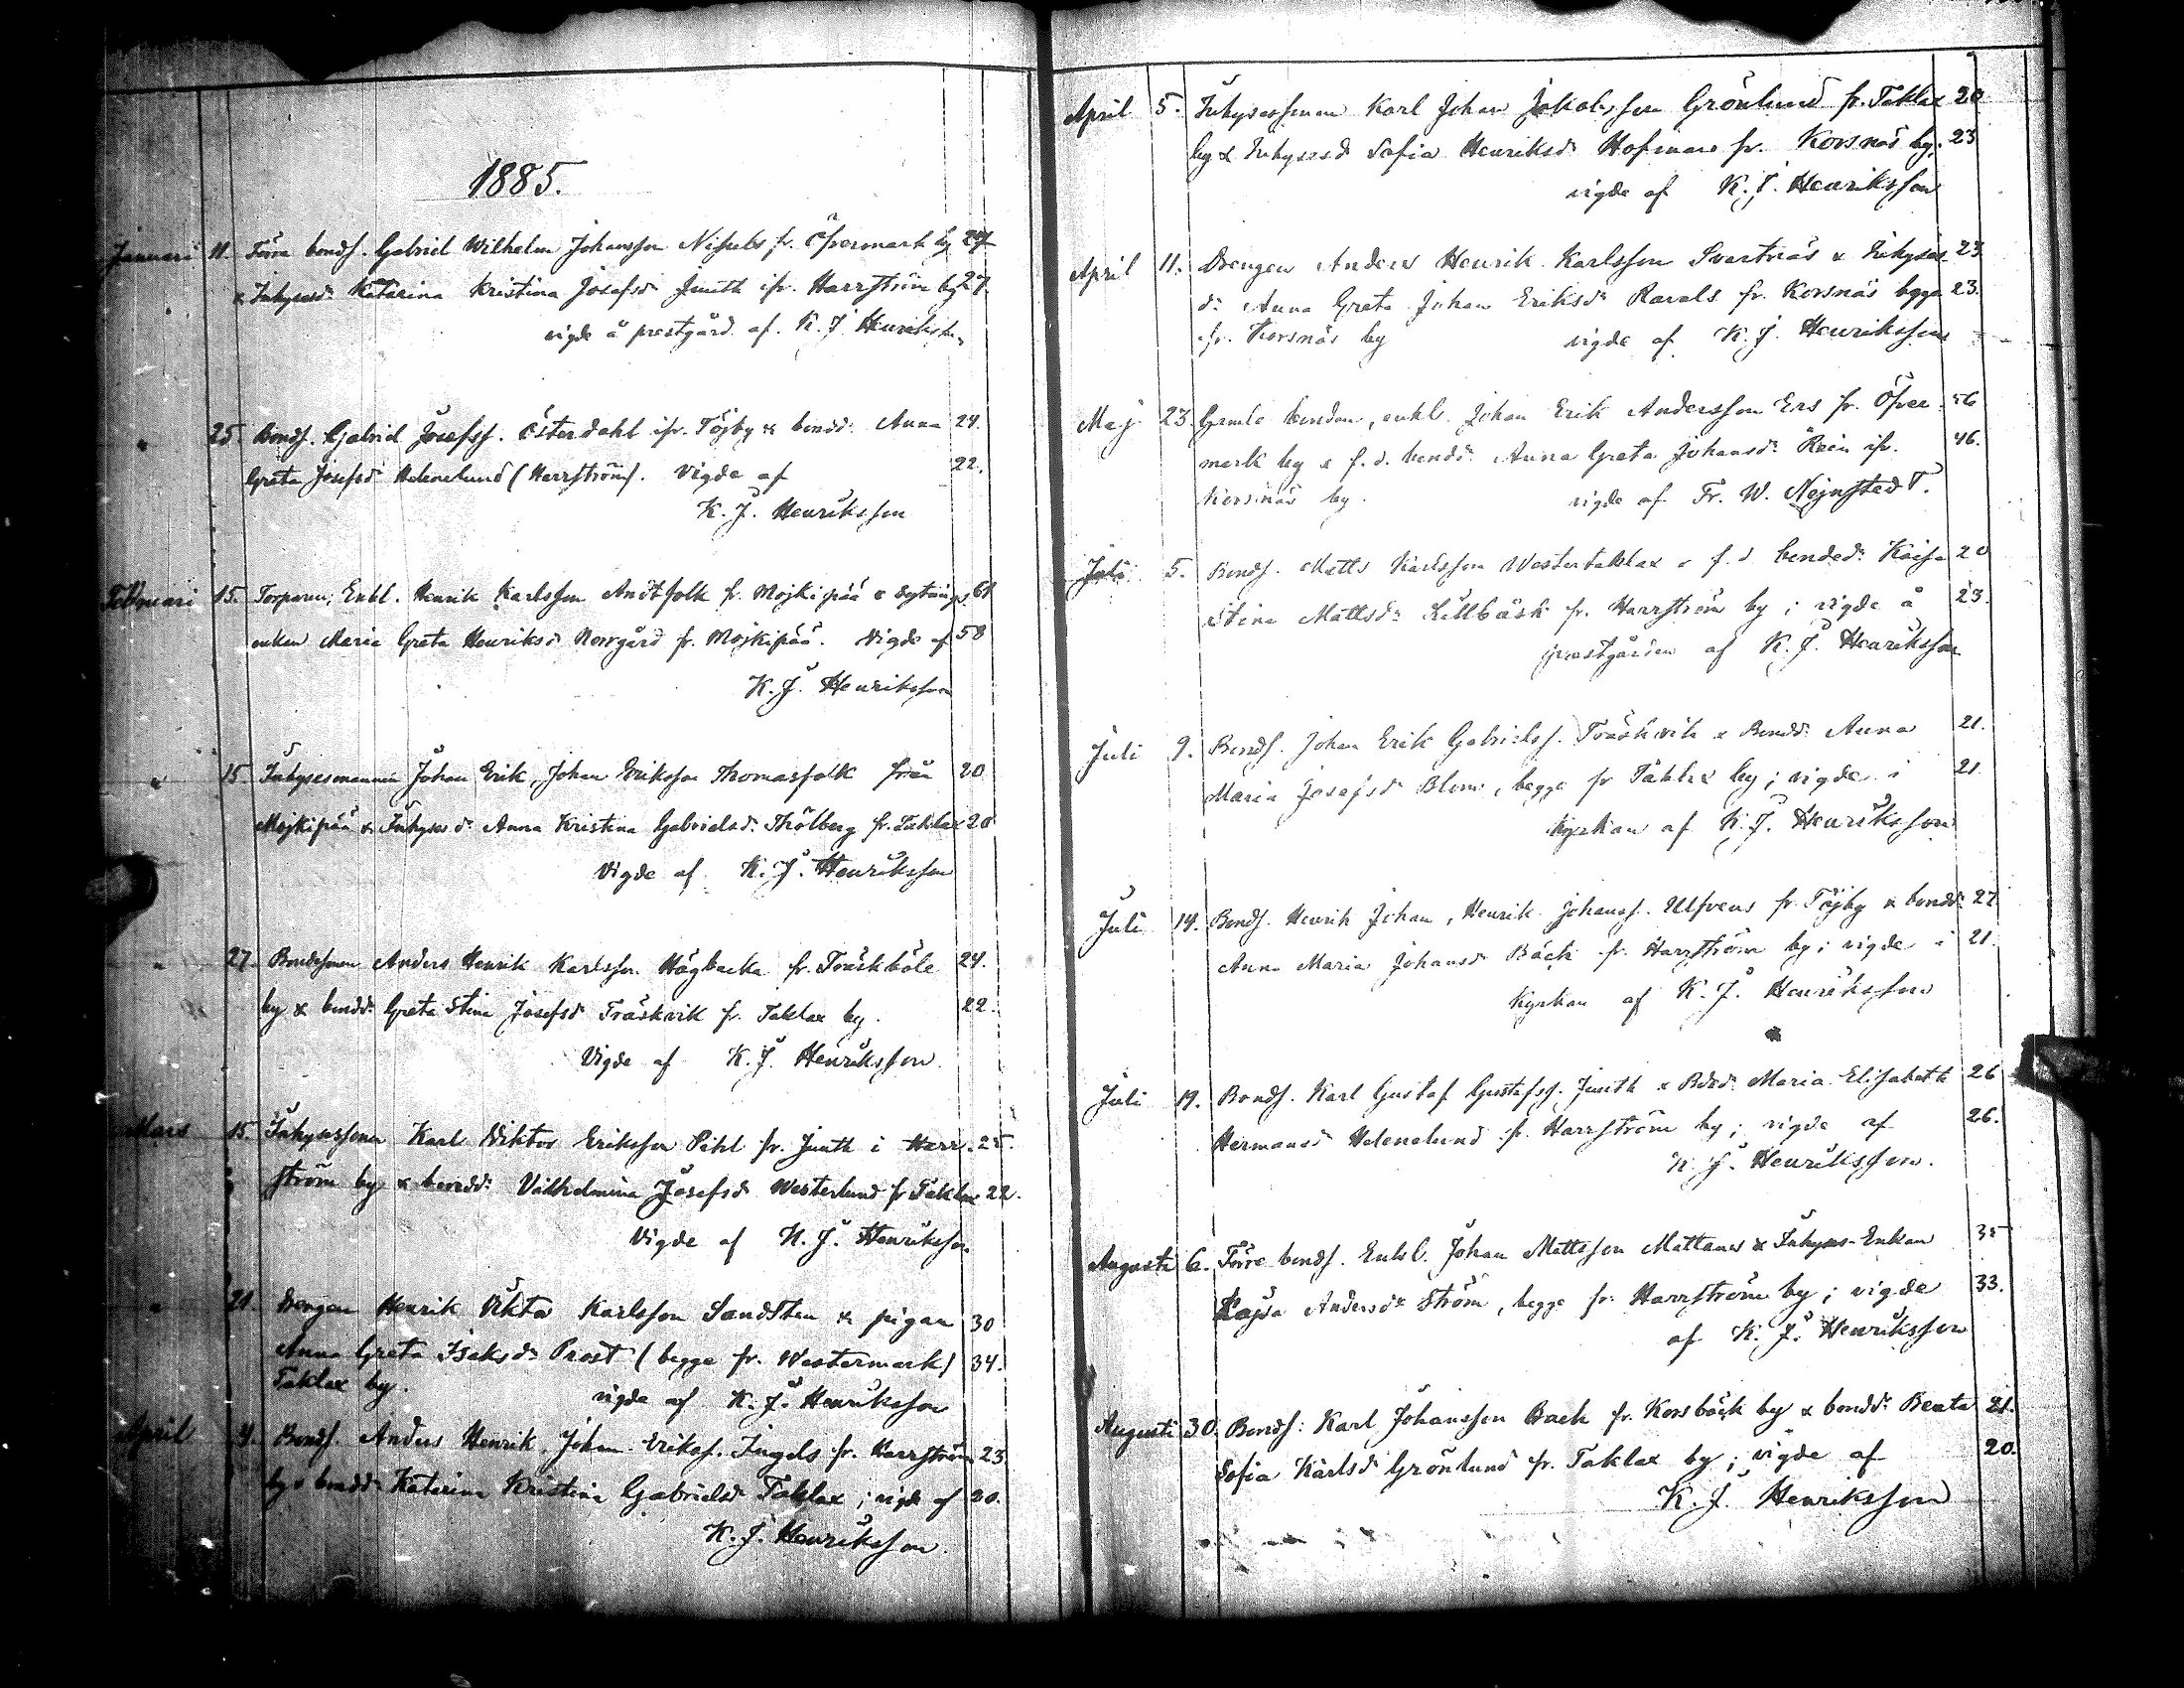 1885.
Januari 11. Förre bonds. Gabriel Wilhelm Johansson Nissels fr. Öfvermark by 27
& Inhysesd. Katarina Kristina Josefsd. Juuth ifr. Harrström by 27.
vigde å prestgård. af K. J. Henriksson
" 25. Bonds. Gabriel Josefss. Österdahl ifr. Töjby & bondd. Anna 24.
Greta Josefsd Helenelund (Harrström). Vigde af 22.
K. J. Henriksson
Februari 15. Torparen, Enkl. Henrik Karlsson Andtfolk fr. Mojkipää & 61
enkan Maria Greta Henriksd. Norrgård fr. Mojkipää. Vigde af 58
K. J. Henriksson
" 15. Inhysesmannen Johan Erik, Johan Eriksson Thomasfolk från 20
Mojkipää & Inhysesd. Anna Kristina Gabrielsd. fr. Taklax 20
Vigde af K. J. Henriksson
" 27. Bondesonen Anders Henrik Karlsson Högbacka fr. Träskböle 24.
by & bondd. Greta Stina Josefsd Träskvik fr. Taklax by. 22.
Vigde af K. J. Henriksson
Mars 15. Inhysessonen Karl Wiktor Eriksson Pihl fr. Juuth i Harr- 25.
ström by & bondd. Vilhelmina Josefsd Westerlund fr Taklax 22.
Vigde af K. J. Henriksson
" 21. Drengen Henrik Viktor Karlsson Sandsten & pigan 30
Anna Greta Isaksd. Prost (begge fr. Westermark) 34.
Taklax by. vigde af K. J. Henriksson
April 4. Bonds. Anders Henrik, Johan Erikss. Ingels fr. Harrström 23
by & bondd. Katarina Kristina Gabrielsd Taklax; vigde af 20.
K. J. Henriksson
April 5. Inhysessonen Karl Johan Jakobsson Grönlund fr. Taklax 20
by & Inhysesd Sofia Henriksd. Hofman fr. Korsnäs by. 23
vigde af K. J. Henriksson
April 11. Drengen Anders Henrik Karlsson Svartnäs & Inhyses 23
d. Anna Greta Johan Eriksd. Ravals fr. Korsnäs begge 23.
fr. Korsnäs by vigde af K. J. Henriksson
Maj 23. Gamle bonden, enkl. Johan Erik Andersson Ers fr. Öfver- 56
mark by & f. d. bondd. Anna Greta Johansd. Rein ifr. 46.
Korsnäs by. vigde af Fr. W. Nejnstedt.
Juli 5. Bonds. Matts Karlsson Westertaklax & f. d. bonded. Kaisa 20
Stina Mattsd. Lillbäck fr. Harrström by; vigde å 23.
prestgården af K. J. Henriksson
Juli 9. Bonds. Johan Erik Gabrielss. Träskvik & Bondd. Anna 21.
Maria Josefsd. Blom, begge fr Taklax by; vigde i 21.
Kyrkan af K. J. Henriksson
Juli 14. Bonds. Henrik Johan, Henrik Johanss. Ulfvens fr. Töjby & bondd. 27
Anna Maria Johansd. Bäck fr. Harrström by; vigde i 21.
Kyrkan af K. J. Henriksson
Juli 19. Bonds. Karl Gustaf Gustafss. Juuth & Bdd. Maria Elisabeth 26
Hermansd Helenelund fr. Harrström by; vigde af 26.
K. J. Henriksson.
Augusti 6. Förre bonds. Enkl. Johan Mattsson Mattans & Inhyses-Enkan 35
Kajsa Andersd. Ström, begge fr. Harrström by; vigde 33.
af K. J. Henriksson
Augusti 30. Bonds: Karl Johansson Back fr. Korsbäck by & bondd. Beata 21.
Sofia Karlsd Grönlund fr. Taklax by; vigde af 20.
K. J. Henriksson